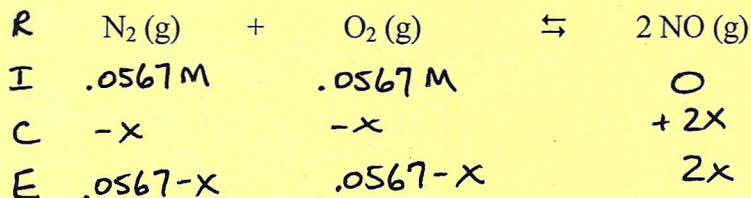 R N₂ (g) + O₂ (g) ⇆ 2 NO (g)
I .0567 M .0567 M 0
C -x -x + 2x
E .0567-x .0567-x 2x